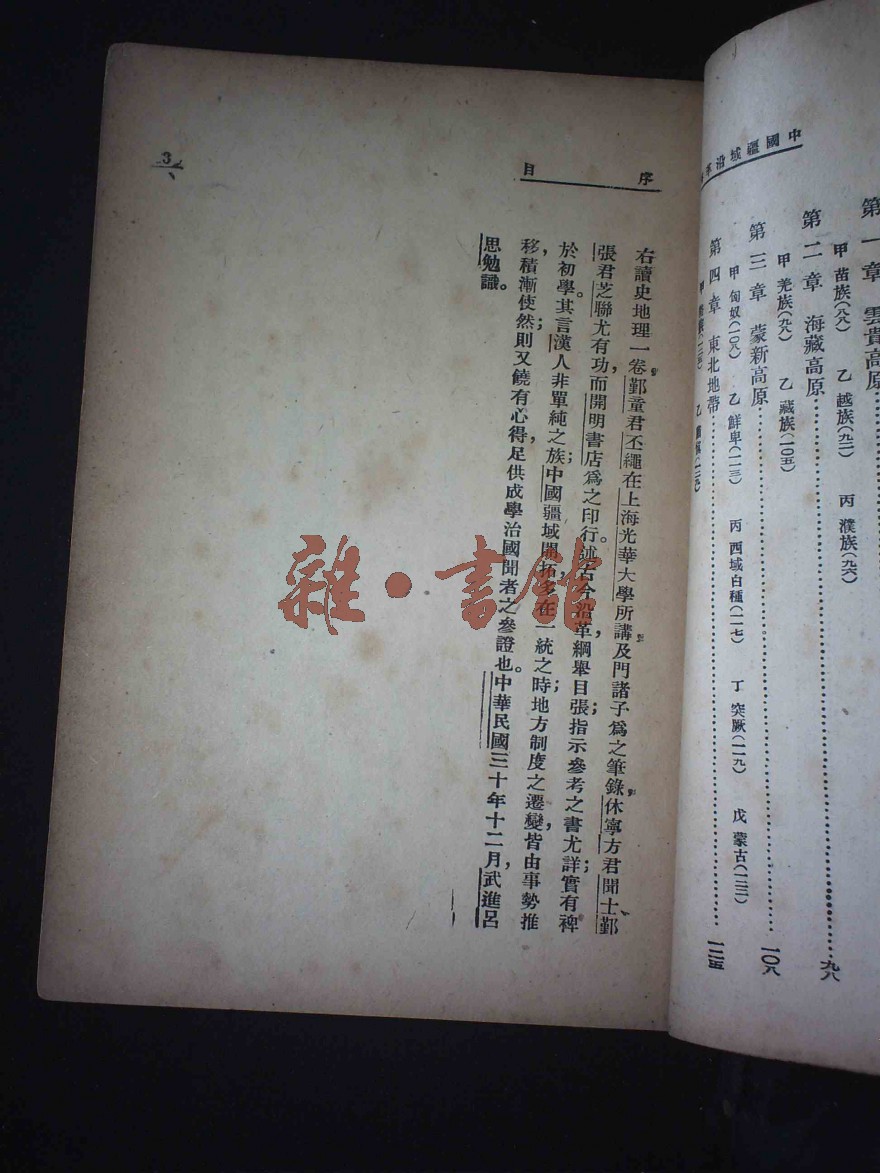 中國疆域沿革
第一章 雲貴高原
甲 苗族(八八) 乙 越族(九二) 丙 濮族(九六)
第二章 海藏高原 九八
甲 羌族(九八) 乙 藏族(一〇五)
第三章 蒙新高原 一〇八
甲 匈奴(一〇八) 乙 鮮卑(一一三) 丙 西域白種(一一七) 丁 突厥(一一九) 戊 蒙古(一二三)
第四章 東北地帶 一二五
序 目
右讀史地理一卷,鄞童君丕繩在上海光華大學所講,及門諸子爲之筆錄,休寧方君聞士、鄞
張君芝聯尤有功,而開明書店爲之印行。述古今沿革,綱舉目張;指示參考之書尤詳,實有裨
於初學。其言漢人非單純之族;中國疆域開拓,多在一統之時;地方制度之遷變,皆由事勢推
移,積漸使然;則又饒有心得,足供成學治國聞者之參證也。中華民國三十年十二月,武進呂
思勉識。
3
雜·書館